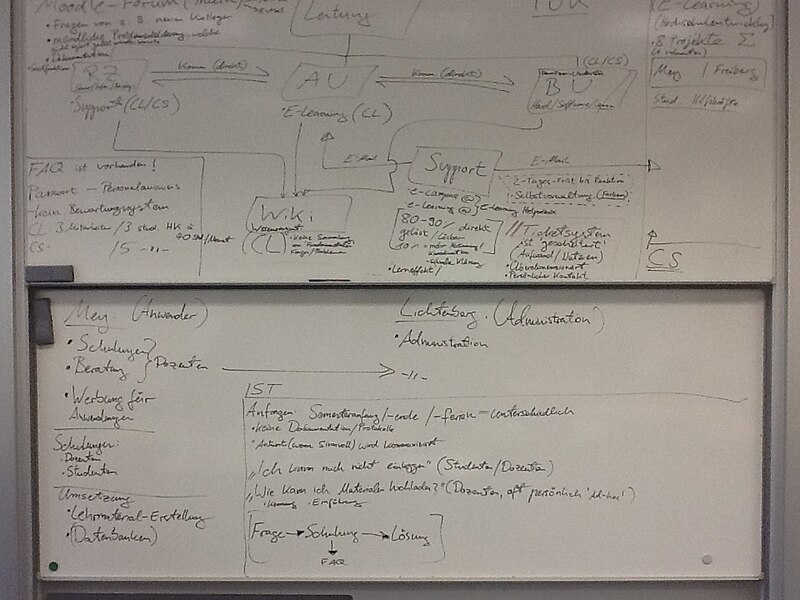 Moodle-Forum
Leitung
TUK
(E-Learning)
• Fragen von z.B. neuen Kollegen
(Hochschulentwicklung)
• mündliche
• 8 Projekte Σ
• Dokumentation
RZ
Komm (direkt)
AU
Komm (direkt)
BU
(CL/CS)
Mey / Freiberg
• Support (CL/CS)
• E-Learning (CL)
Hard/Software/
Stud. Hilfskräfte
FAQ ist vorhanden!
E-Mail
Support
E-Mail
Passwort – Personalausweis
2-Tages-Frist bis Reaktion
- kein Bewertungssystem
Wiki
e-campus @
• Selbstverwaltung (Farben)
e-learning @
E-Learning Helpdesk
CL 3 Mitarbeiter / 3 stud. HK à 40 Std/Monat
(CL)
• keine Sammlung
80-90% direkt
gelöst
!! Ticketsystem
ist "gescheitert"
(Aufwand/Nutzen)
CS: /5 -"-
Fragen/Probleme
10%
• Lerneffekt /
• Überdimensioniert
• Persönlicher Kontakt
CS
Mey: (Anwender)
Lichtenberg: (Administration)
• Schulungen
• Administration
• Beratung } Dozenten
-"-
• Werbung für
Anwendungen
IST
Anfragen: Semesteranfang/-ende/-ferien = unterschiedlich
• Keine Dokumentation/Protokolle
Schulungen:
• Antwort (wenn sinnvoll) wird kommuniziert
• Dozenten
• Studenten
„Ich kann mich nicht einloggen" (Studenten/Dozenten)
Umsetzung
„Wie kann ich Materialien hochladen?" (Dozenten, oft persönlich 'Ad-hoc')
• Lehrmaterial-Erstellung
• Einführung
• (Datenbanken)
Frage → Schulung → Lösung
FAQ